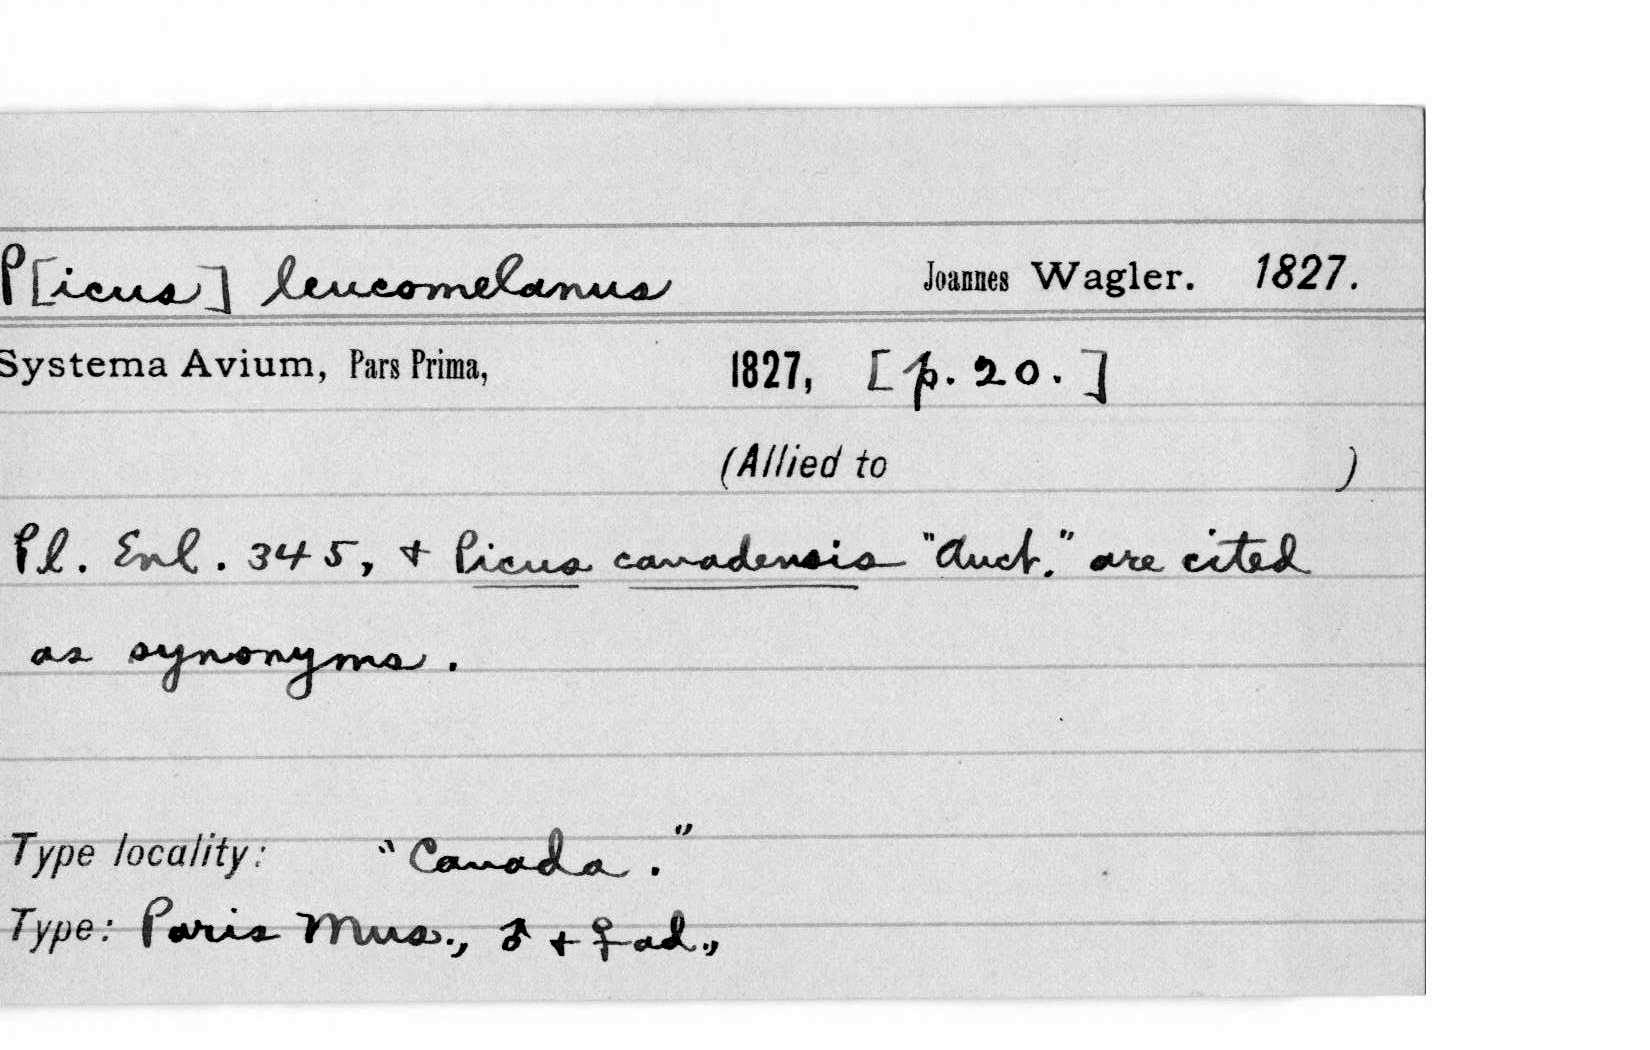 P[icus] leucomelanus Joannes Wagler. 1827.
Systema Avium, Pars Prima, 1827, [p. 20.]
(Allied to )
Pl. Enl. 345, + Picus canadensis "Auct." are cited
as synonyms.
Type locality: "Canada."
Type: Paris Mus., ♂ + ♀ ad.,